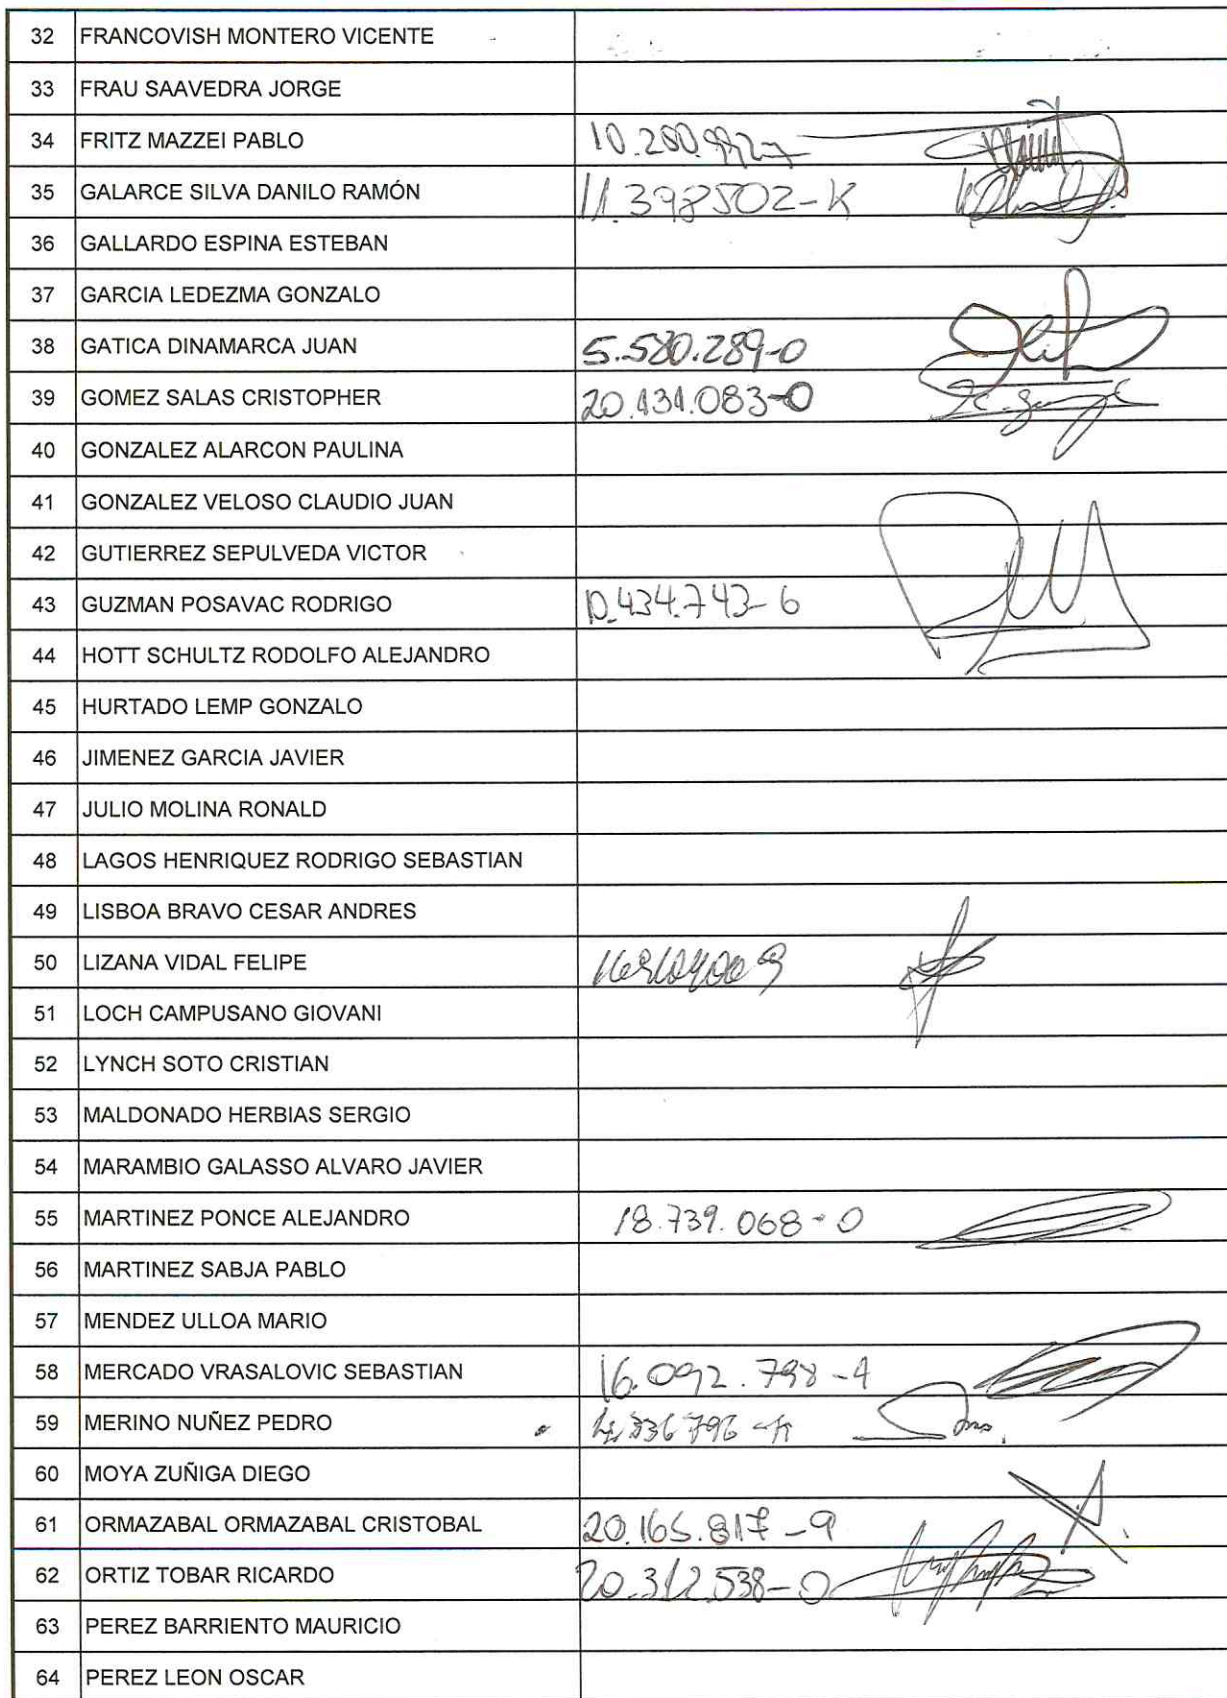 32 FRANCOVISH MONTERO VICENTE
33 FRAU SAAVEDRA JORGE
34 FRITZ MAZZEI PABLO 10.280.992-7
35 GALARCE SILVA DANILO RAMÓN 11.398502-K
36 GALLARDO ESPINA ESTEBAN
37 GARCIA LEDEZMA GONZALO
38 GATICA DINAMARCA JUAN 5.580.289-0
39 GOMEZ SALAS CRISTOPHER 20.431.083-0
40 GONZALEZ ALARCON PAULINA
41 GONZALEZ VELOSO CLAUDIO JUAN
42 GUTIERREZ SEPULVEDA VICTOR
43 GUZMAN POSAVAC RODRIGO 10.434.743-6
44 HOTT SCHULTZ RODOLFO ALEJANDRO
45 HURTADO LEMP GONZALO
46 JIMENEZ GARCIA JAVIER
47 JULIO MOLINA RONALD
48 LAGOS HENRIQUEZ RODRIGO SEBASTIAN
49 LISBOA BRAVO CESAR ANDRES
50 LIZANA VIDAL FELIPE
51 LOCH CAMPUSANO GIOVANI
52 LYNCH SOTO CRISTIAN
53 MALDONADO HERBIAS SERGIO
54 MARAMBIO GALASSO ALVARO JAVIER
55 MARTINEZ PONCE ALEJANDRO 18.739.068-0
56 MARTINEZ SABJA PABLO
57 MENDEZ ULLOA MARIO
58 MERCADO VRASALOVIC SEBASTIAN 16.092.798-4
59 MERINO NUÑEZ PEDRO
60 MOYA ZUÑIGA DIEGO
61 ORMAZABAL ORMAZABAL CRISTOBAL 20.165.817-9
62 ORTIZ TOBAR RICARDO 20.312.538-0
63 PEREZ BARRIENTO MAURICIO
64 PEREZ LEON OSCAR